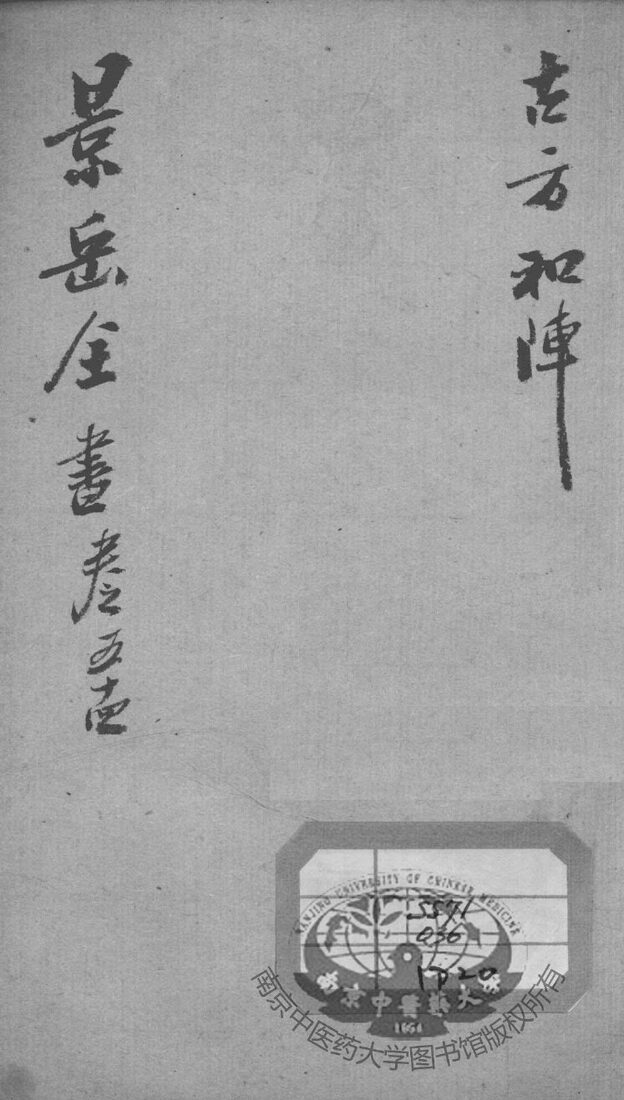 古方和陣
景岳全書卷之五十四
NANJING UNIVERSITY OF CHINESE MEDICINE
南京中醫藥大學
1954
南京中医药大学图书馆版权所有